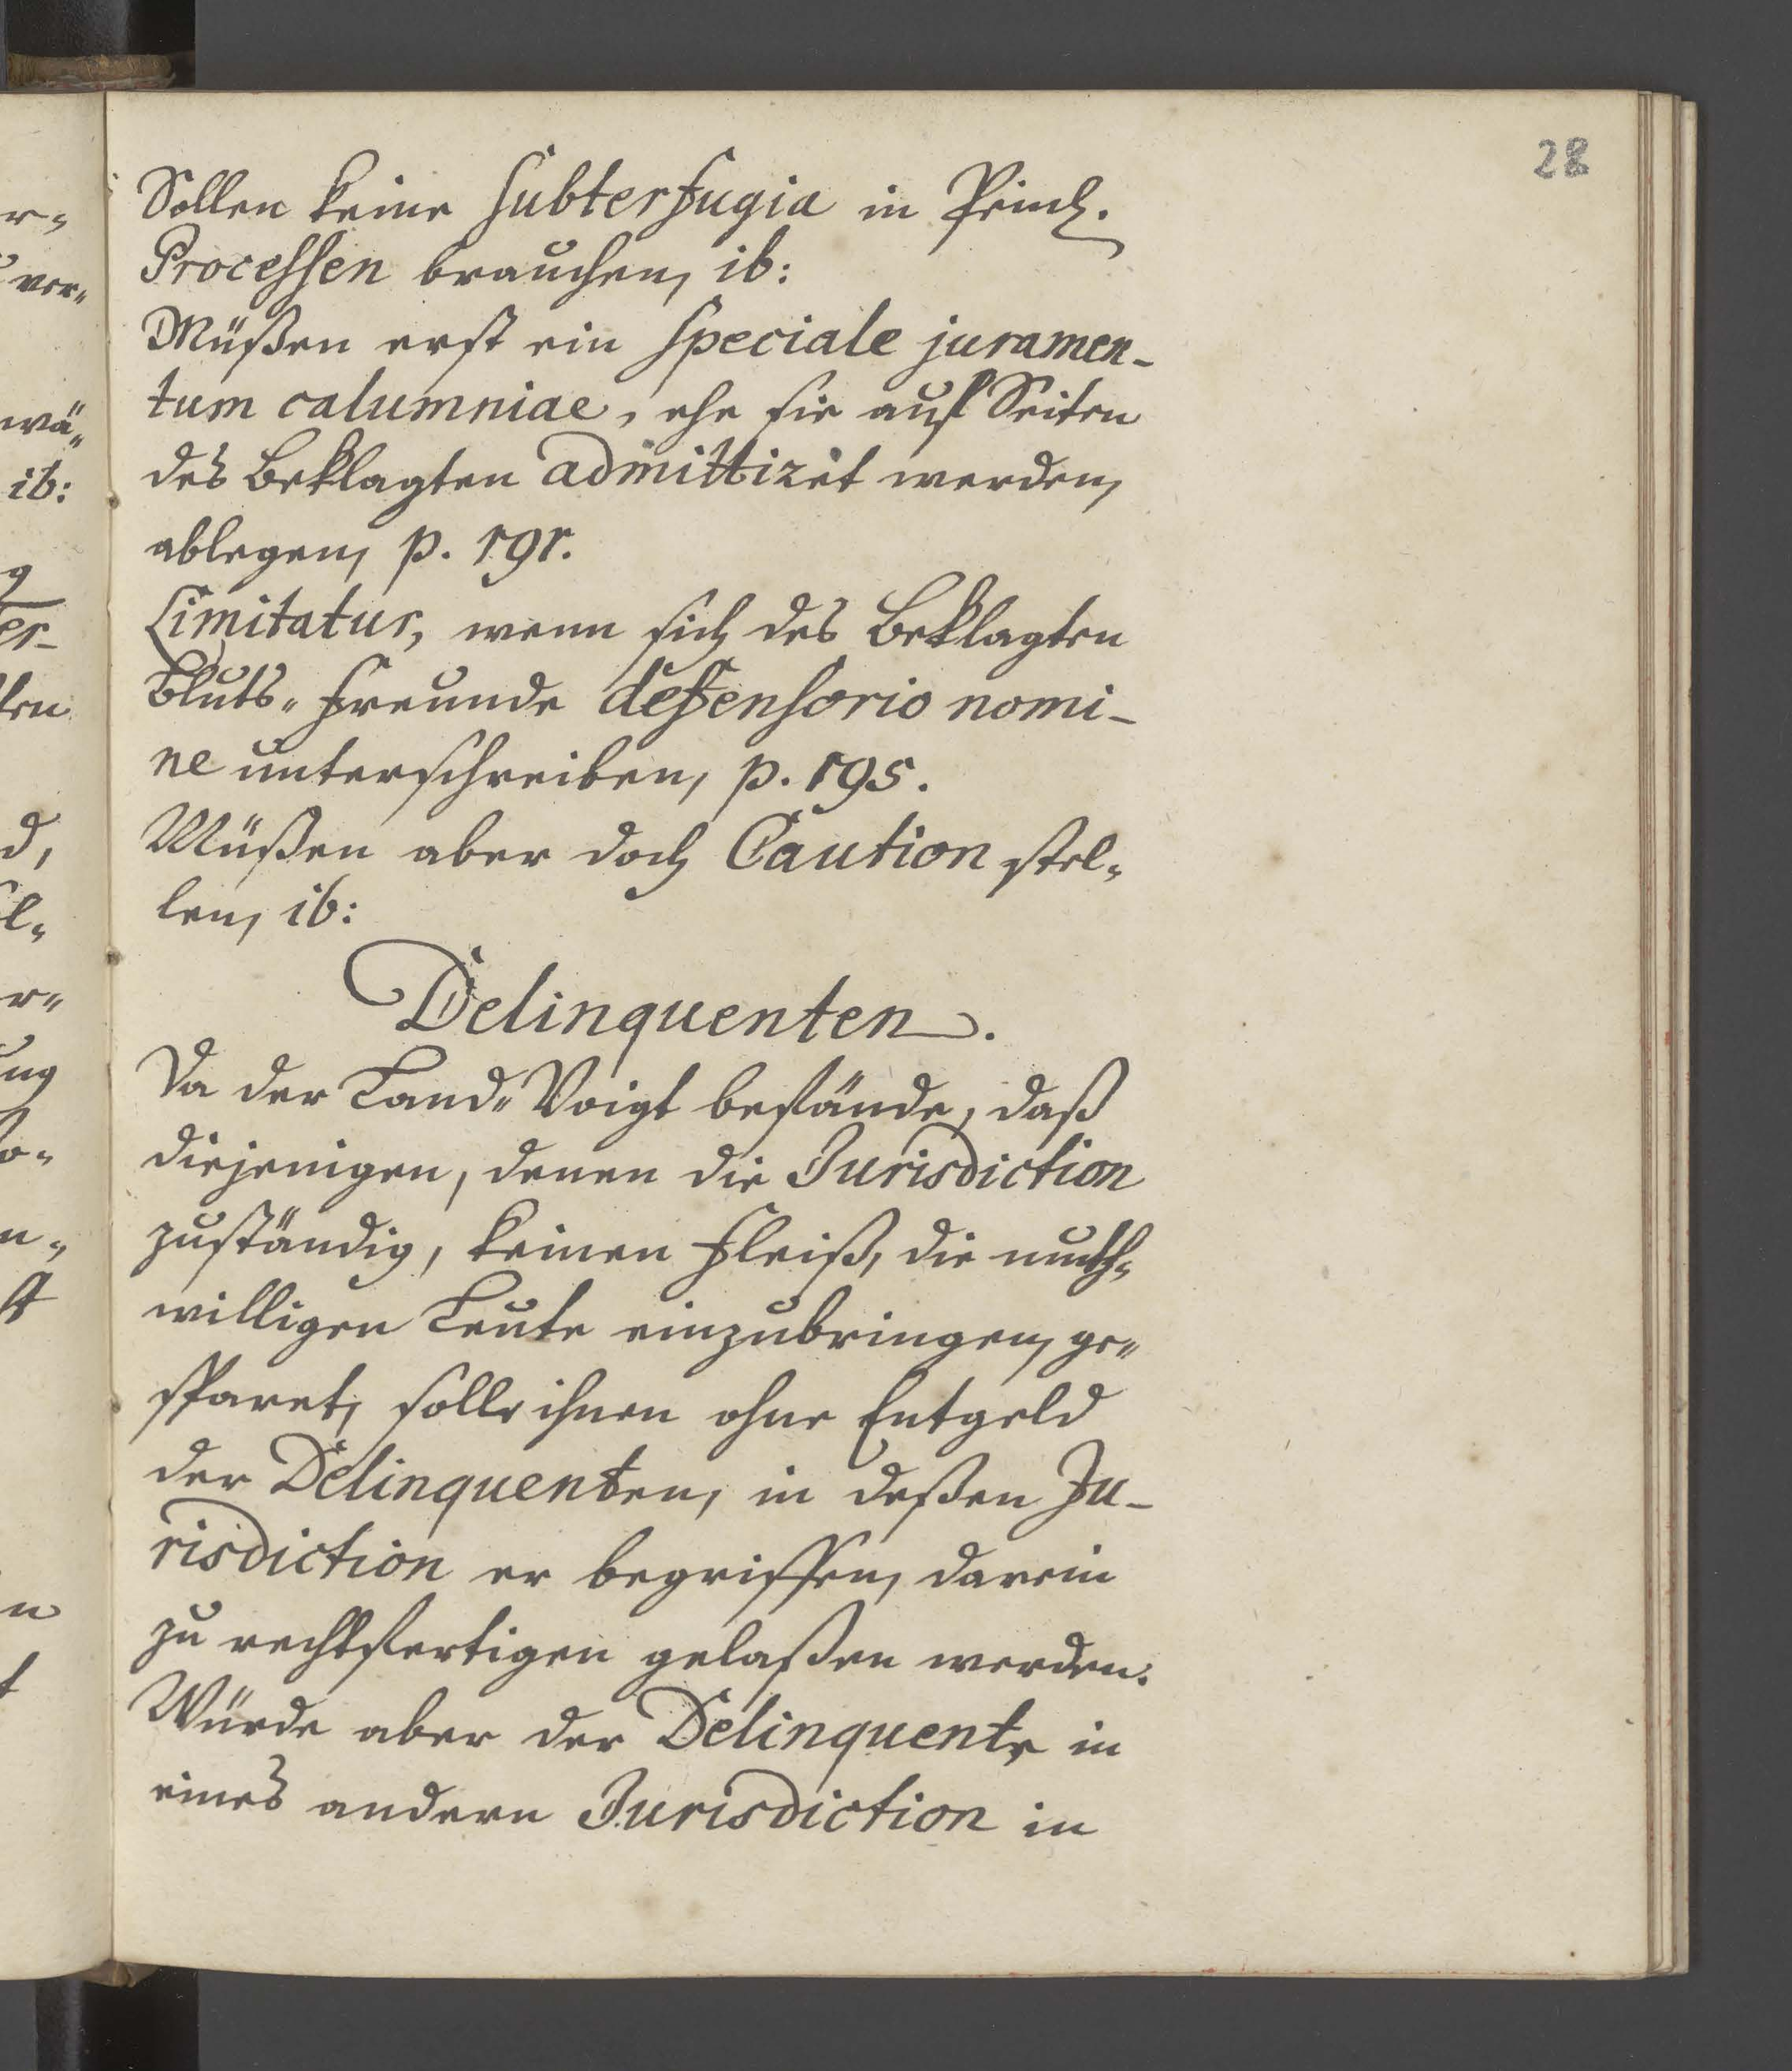 28
Sollen keine subterfugia in Peinl.
Processen brauchen, ib:
Müßen erst ein speciale juramen-
tum calumniae, ehe sie auf Seiten
des Beklagten admittiret werden,
ablegen, p. 191.
Limitatur, wenn sich des Beklagten
Bluts-Freunde defensorio nomi-
ne unterschreiben, p. 195.
Müßen aber doch Caution stel-
len, ib:
Delinquenten.
Da der Land-Voigt befände, daß
diejenigen, denen die Jurisdiction
zuständig, keinen Fleiß, die muth-
willigen Leute einzubringen, ge-
sparet, solle ihnen ohne Entgeld
der Delinquenten, in deßen Ju-
risdiction er begriffen, darein
zu rechtfertigen gelaßen werden.
Würde aber der Delinquente in
eines andern Jurisdiction in